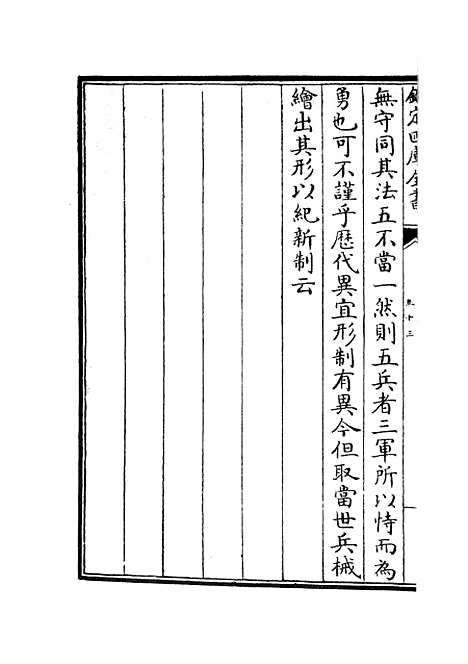 欽定四庫全書
卷十三
無守同其法五不當一然則五兵者三軍所以恃而為
勇也可不謹乎歴代異宜形制有異今但取當世兵械
繪出其形以紀新制云